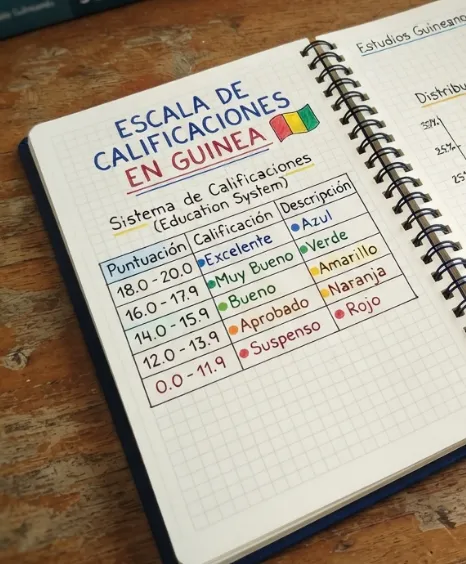 ESCALA DE
CALIFICACIONES
EN GUINEA
Sistema de Calificaciones
(Education System)
Puntuación Calificación Descripción
18.0 - 20.0 Excelente Azul
16.0 - 17.9 Muy Bueno Verde
14.0 - 15.9 Bueno Amarillo
12.0 - 13.9 Aprobado Naranja
0.0 - 11.9 Suspenso Rojo
Estudios Guineano
Distribu
25%